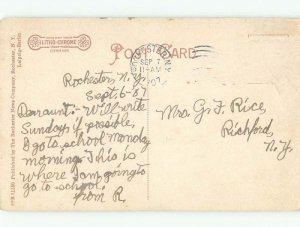 LITHO-CHROME
POST CARD
SEP 7
11-AM
Rochester, N.Y.
Sept. 6-07
Dear aunt:- Will write
Sunday if possible,
I go to school Monday
morning. This is
where I am going to
go to school.
from R.
Mrs. G. F. Rice,
Richford,
N.Y.
Published by The Rochester News Company, Rochester, N.Y.
Leipzig-Berlin.